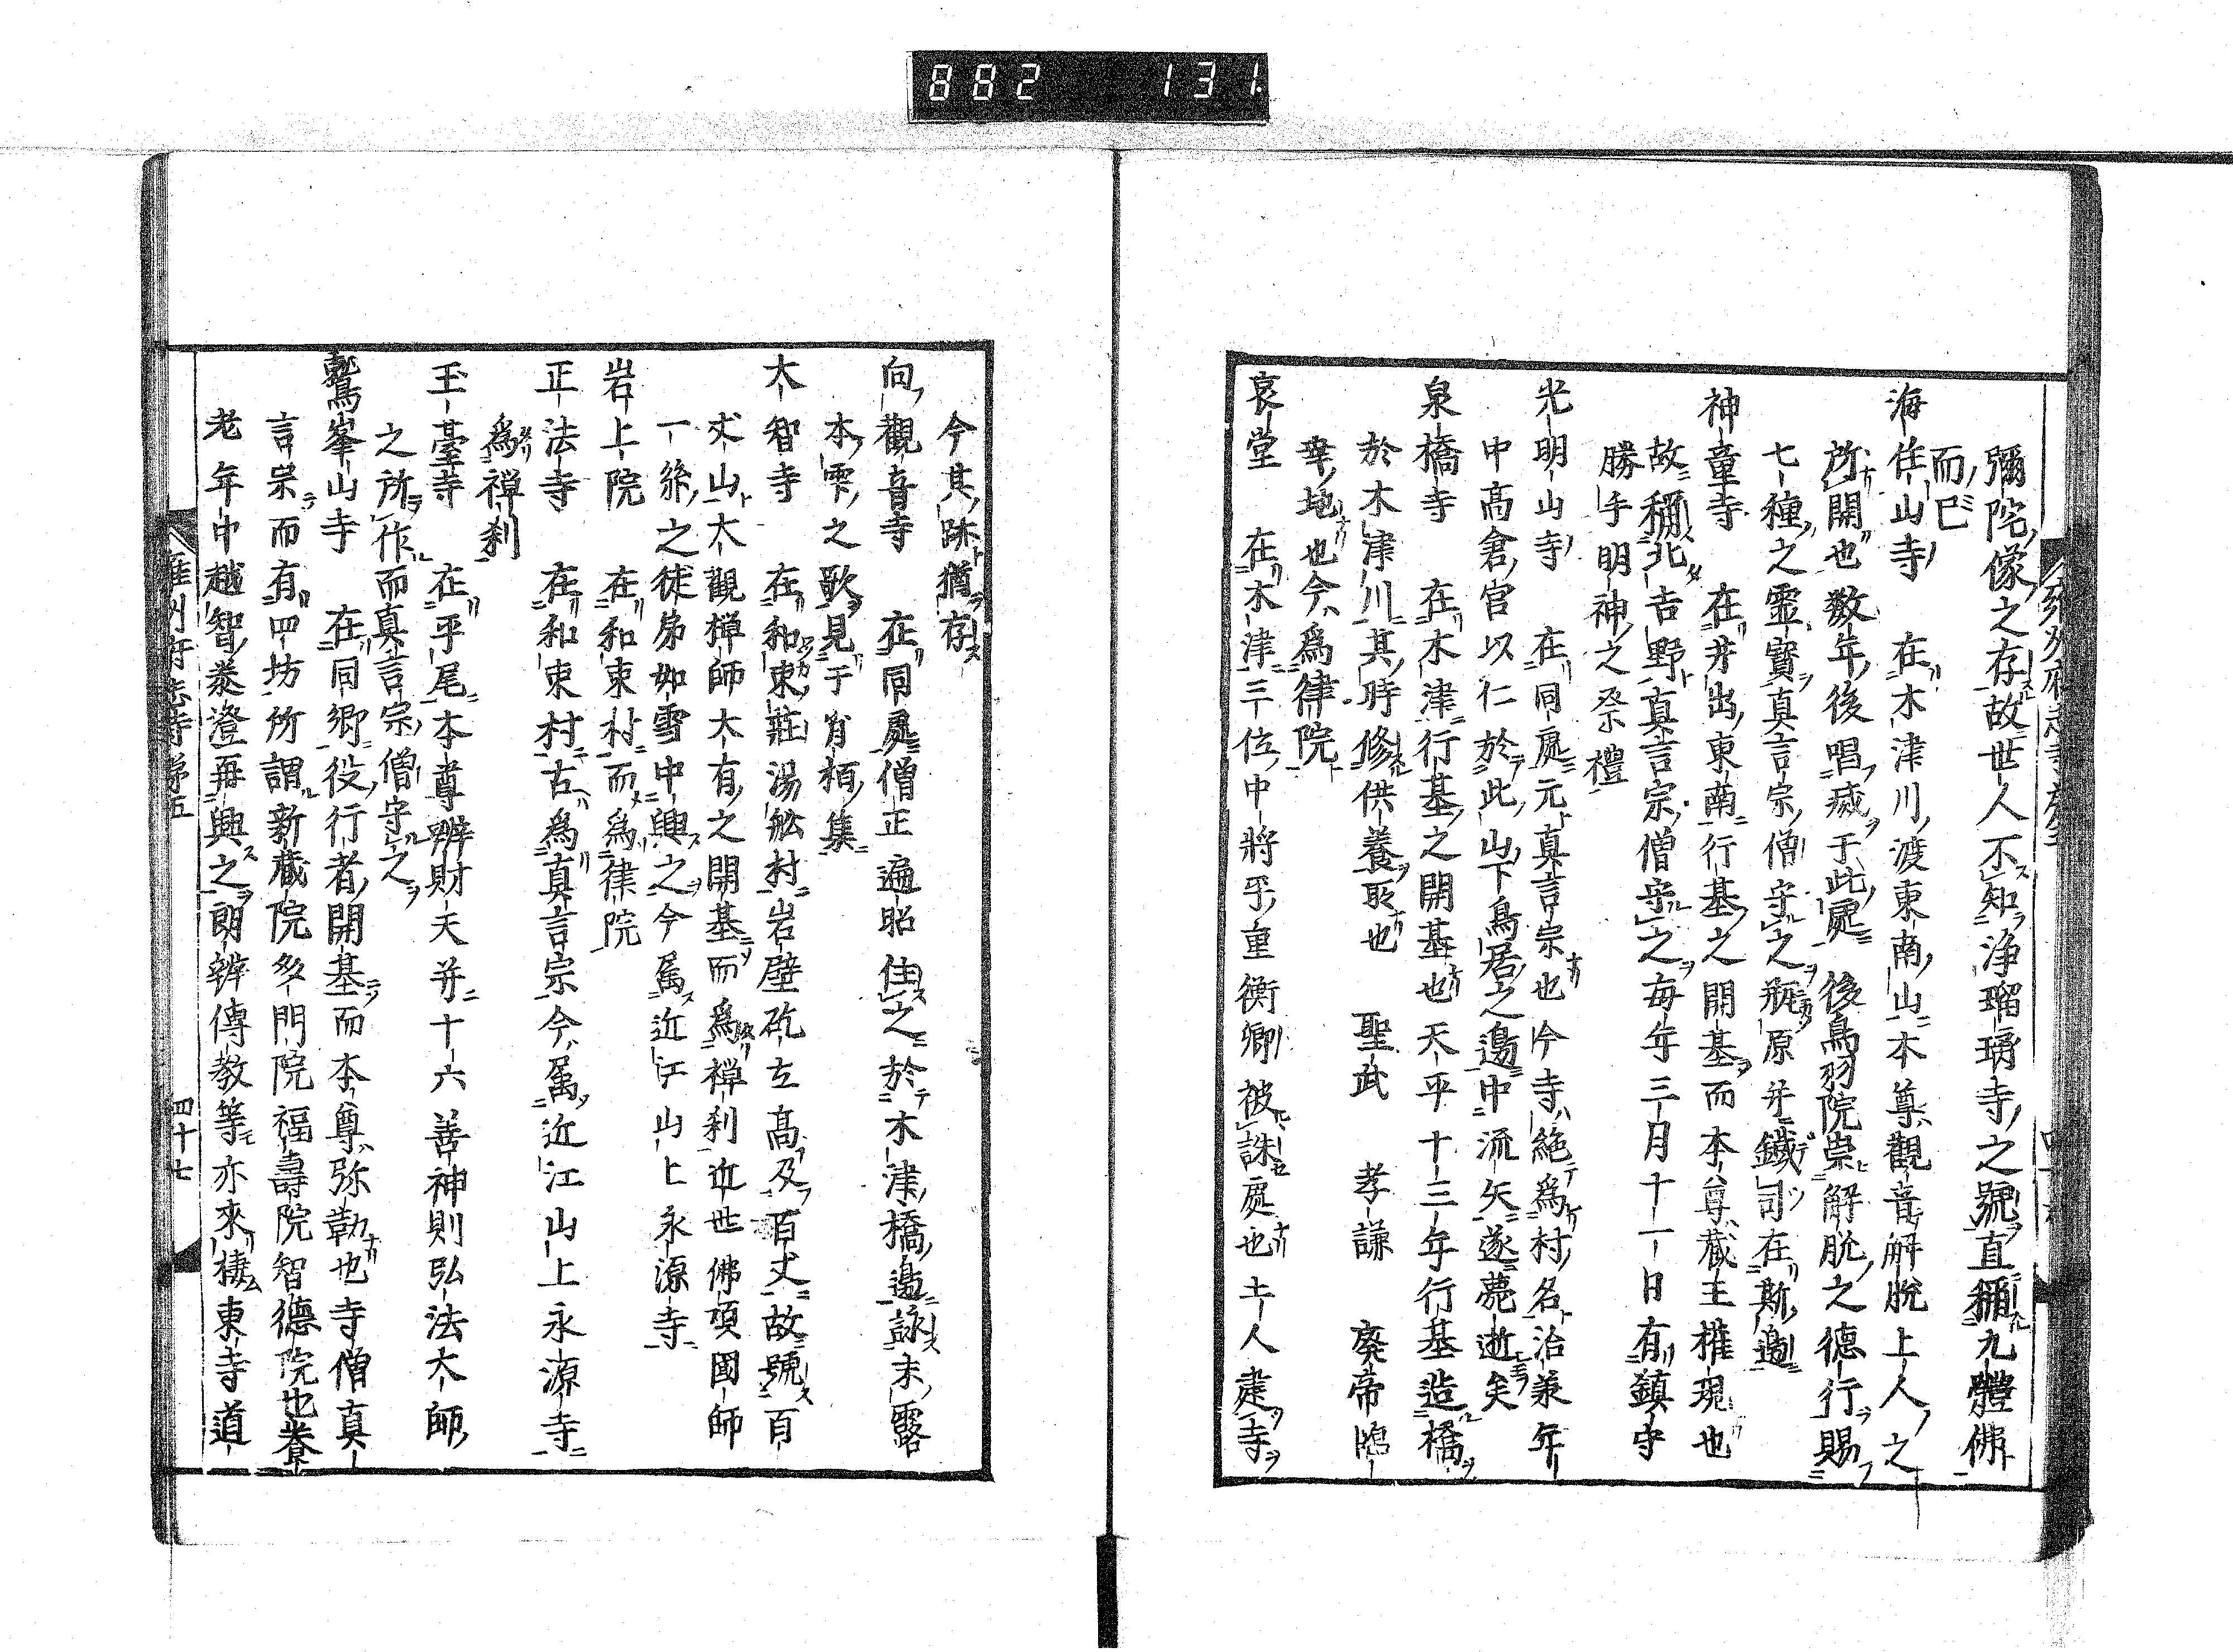 882 131
彌陀像之存故世人不知淨瑠璃寺之號直稱九體佛
而已
海住山寺 在木津川渡東南山本尊觀音解脫上人之
所開也數年後唱滅于此處 後鳥羽院崇解脫之德行賜
七種之靈寶真言宗僧守之瓶原并鐵司在斯邊
神童寺 在井出東南行基之開基而本尊藏王權現也
故稱北吉野真言宗僧守之每年三月十一日有鎮守
勝手明神之祭禮
光明山寺 在同處元真言宗也今寺絶為村名治兼年
中高倉宮以仁於此山下鳥居之邊中流矢遂薨逝矣
泉橋寺 在木津行基之開基也天平十三年行基造橋
於木津川其時修供養所也 聖武 孝謙 廢帝臨
幸地也今為律院
哀堂 在木津三位中將平重衡卿被誅處也土人建寺
今其跡猶存
向觀音寺 在同處僧正遍昭住之於木津橋邊詠末露
本雫之歌見于肖栢集
大智寺 在和束莊湯舩村岩壁矻立高及百丈故號百
丈山大觀禪師大有之開基而為禪刹近世佛頂國師
一絲之徒弟如雪中興之今属近江山上永源寺
岩上院 在和束村而為律院
正法寺 在和束村古為真言宗今属近江山上永源寺
為禪刹
玉臺寺 在平尾本尊辨財天并十六善神則弘法大師
之所作而真言宗僧守之
鷲峯山寺 在同郷役行者開基而本尊弥勒也寺僧真
言宗而有四坊所謂新藏院多門院福壽院智德院也養
老年中越智泰澄再興之朗辨傳教等亦來棲東寺道
雍州府志寺第五 四十七